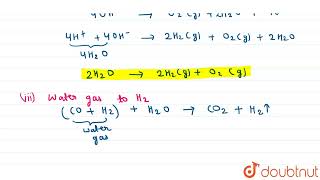 4OH⁻ → O₂(g) + 2H₂O +
4H⁺ + 4OH⁻ → 2H₂(g) + O₂(g) + 2H₂O
4H₂O
2H₂O → 2H₂(g) + O₂(g)
(vii) Water gas to H₂
(CO + H₂) + H₂O → CO₂ + H₂↑
water
gas
doubtnut